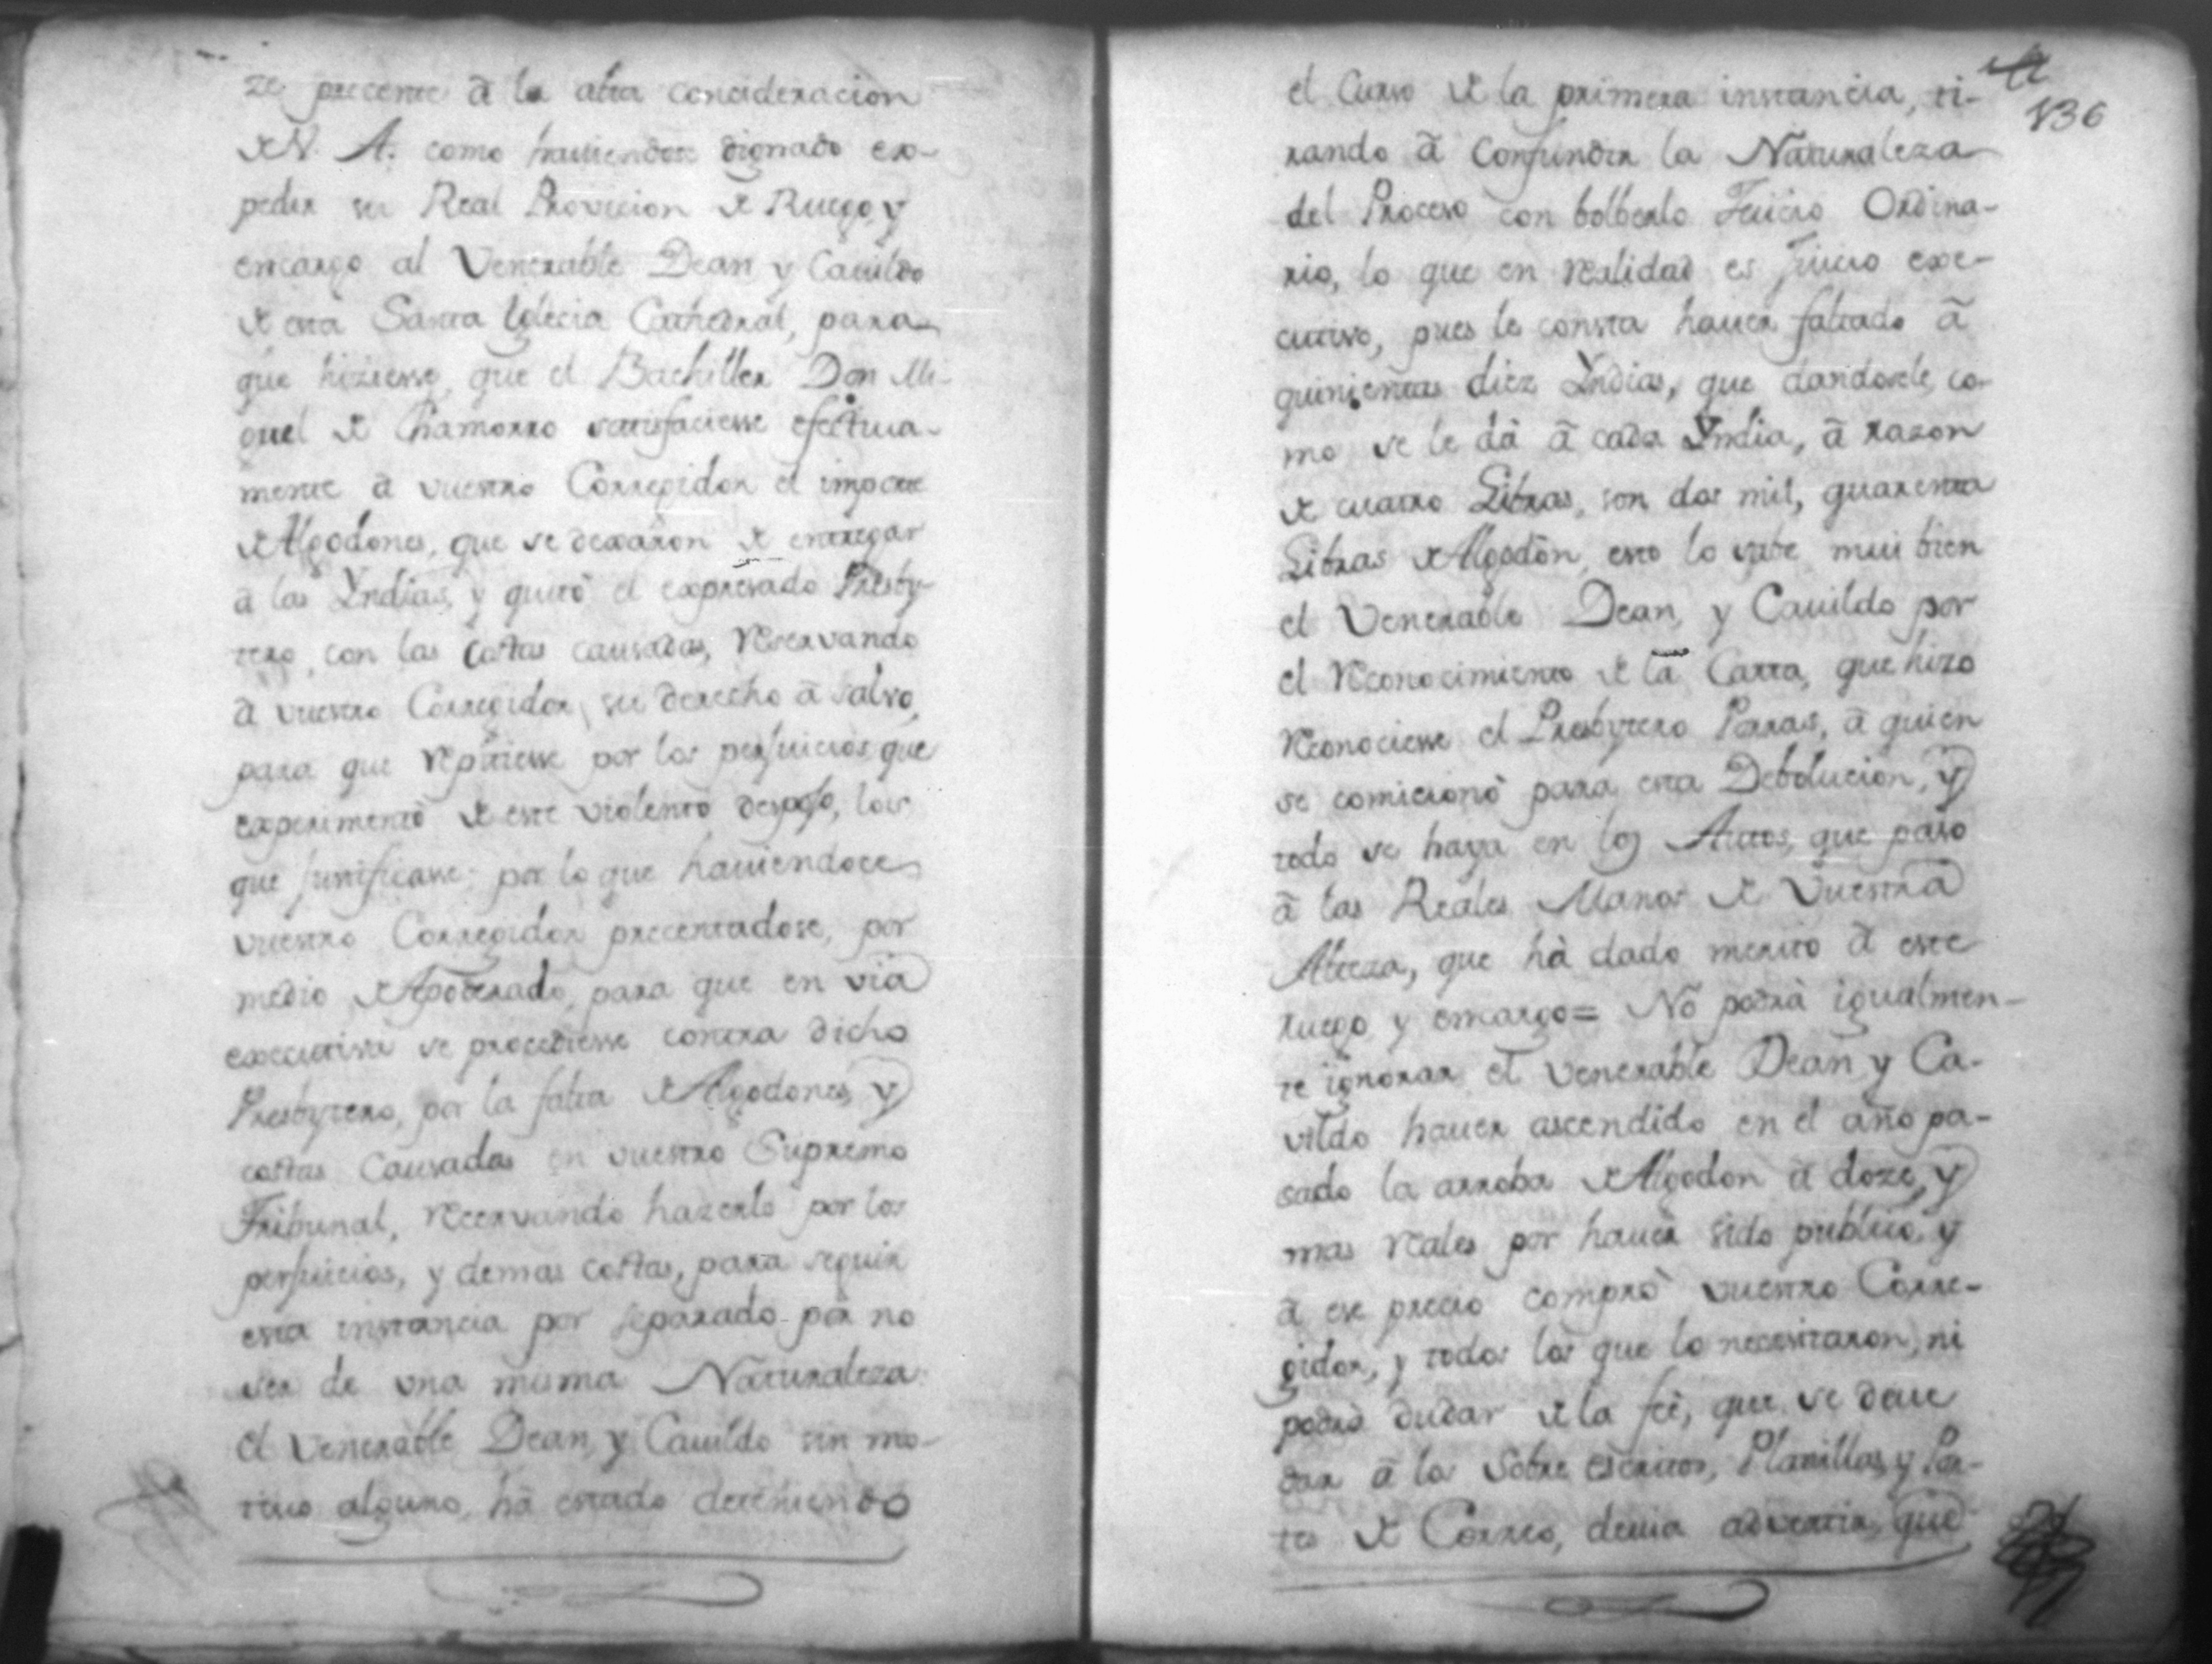 ze precente â la alta concideracion
de V. A. como haviendose dignado ex-
pedir su Real Provicion de Ruego, y
encargo al Venerable Dean y Cavildo
de esta Santa Iglecia Cathedral, para
que hiziesse, que el Bachiller Don Mi-
guel de Chamorro satisfaciesse efectua-
mente â vuestro Corregidor el importe
de Algodones, que se dexaron de entregar
â las Yndias, y quitò el expresado Presby-
tero, con las costas causadas, reservando
â vuestro Corregidor, su derecho â salvo,
para que repitiesse por los perjuicios que
experimentò de este violento despojo, los
que justificasse; por lo que haviendoce
vuestro Corregidor precentadose, por
medio de Apoderado, para que en via
executiva se procediesse contra dicho
Presbytero, por la falta de Algodones, y
costas causadas en vuestro Supremo
Tribunal, recervando hazerlo por los
perjuicios, y demas costas, para seguir
esta instancia por separado por no
ser de una misma Naturaleza:
el Venerable Dean, y Cavildo sin mo-
tivo alguno, hâ estado deteniendo
136
el Curso de la primera instancia, ti-
rando â confundir la Naturaleza
del Proceso con bolberlo Juicio Ordina-
rio, lo que en realidad es Juicio exe-
cutivo, pues le consta haver faltado â
quinientas diez Yndias, que dandosele, co-
mo se le dà â cada Yndia, â razon
de cuatro Libras, son dos mil, quarenta
Libras de Algodòn, esto lo sabe mui bien
el Venerable Dean, y Cavildo por
el reconocimiento de la Carta, que hizo
reconociesse el Presbytero Parras, â quien
se comicionò para esta Debolucion, y
todo se haya en los Autos, que pasò
â las Reales Manos de Vuestra
Alteza, que hà dado merito â este
ruego y encargo= No podrà igualmen-
te ignorar el Venerable Dean y Ca-
vildo haver ascendido en el año pa-
sado la arroba de Algodon â doze, y
mas reales por haver sido publico, y
â ese precio comprò vuestro Corre-
gidor, y todos los que lo necesitaron, ni
podrà dudar de la feè, que se deve
dar â los Sobre escritos, Planillas, y Par-
tes de Correo, devia advertir, que